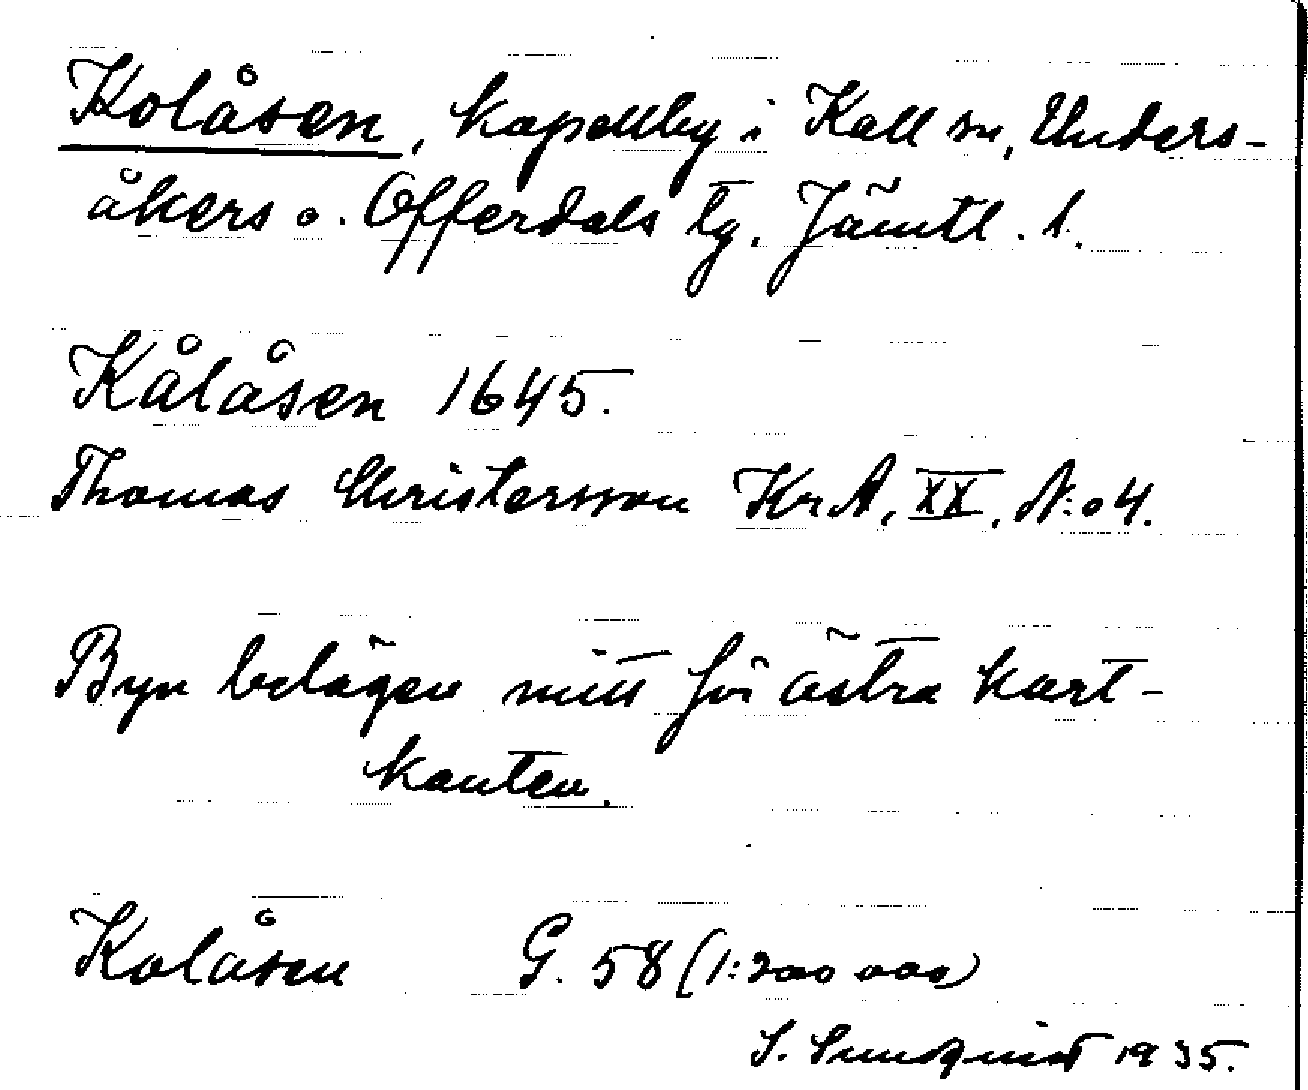 Kolåsen, kapellby i Kall sn, Unders-
åkers o. Offerdals tg. Jämtl. l.
Kålåsen 1645.
Thomas Christersson KrA, XX, N:o 4.
Byn belägen mitt för östra kart-
kanten.
Kolåsen G. 58 (1:200 000)
S. Sundqvist 1935.